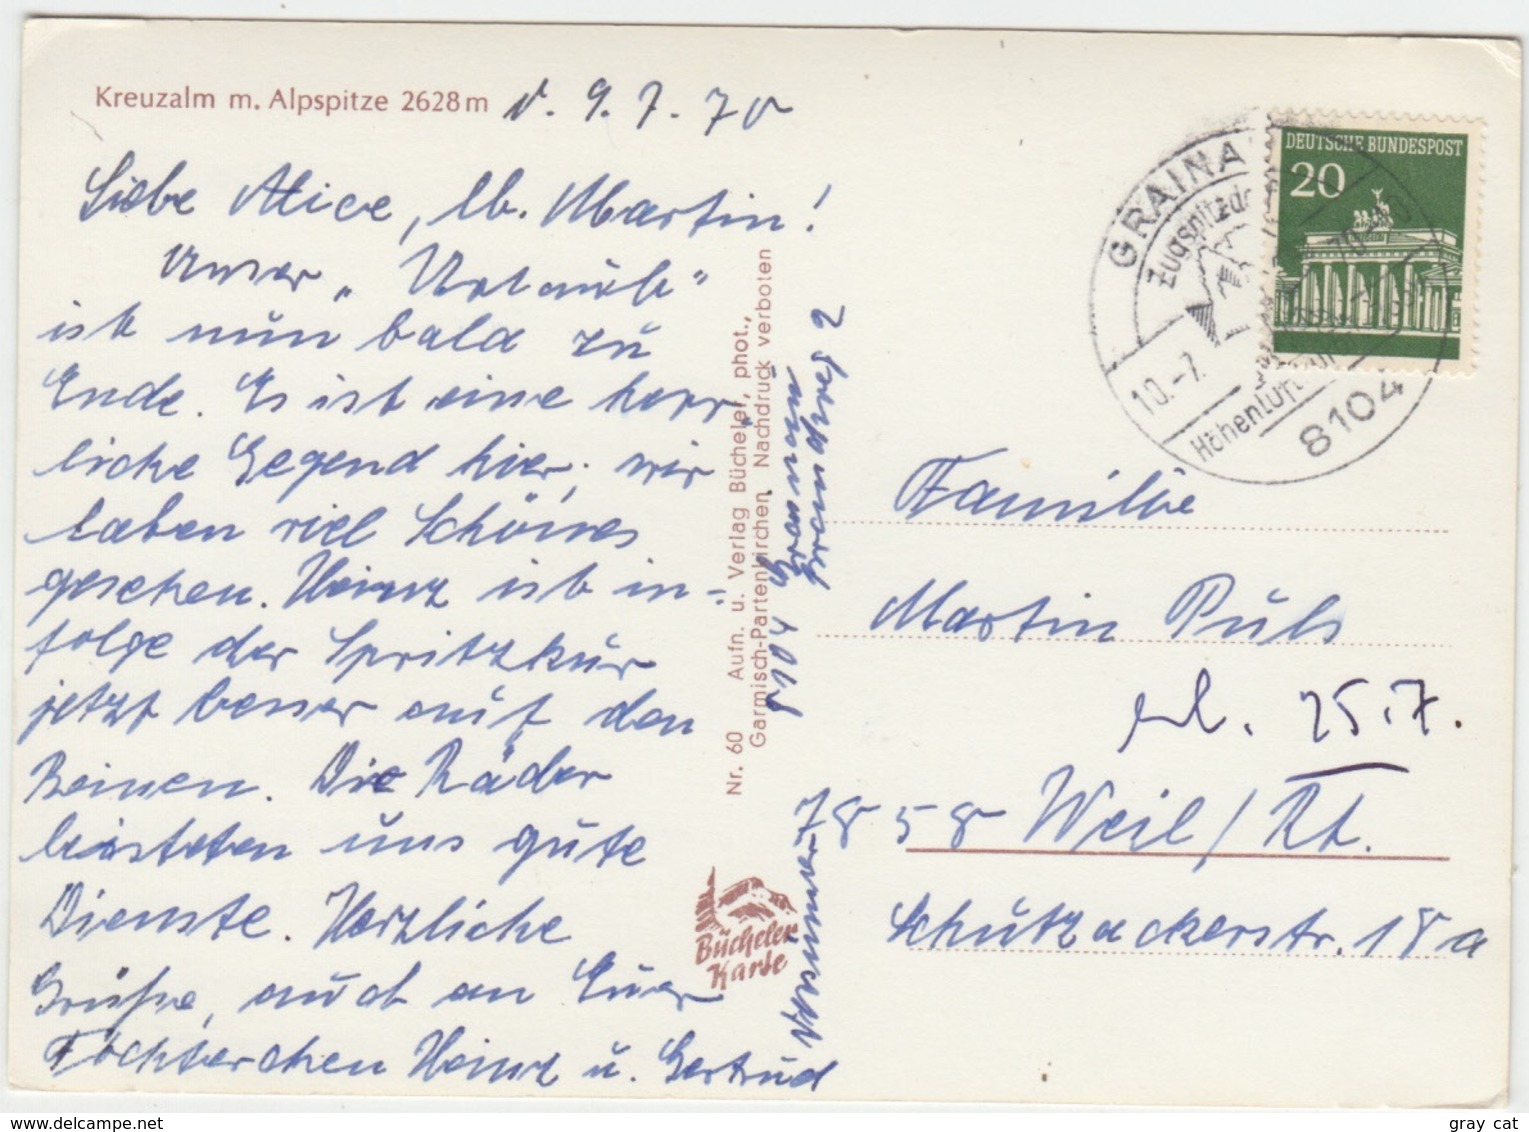 Kreuzalm m. Alpspitze 2628 m
d. 9.7.70
Liebe Alice, lb. Martin!
Unser „Urlaub"
ist nun bald zu
Ende. Es ist eine herr-
liche Gegend hier, wir
haben viel Schönes
gesehen. Heinz ist in-
folge der Spritzkur
jetzt besser auf den
Beinen. Die Räder
leisteten uns gute
Dienste. Herzliche
Grüße, auch an Euer
Töchterchen Heinz u. Gertrud
Nr. 60 Aufn. u. Verlag Bücheler, phot.,
Garmisch-Partenkirchen Nachdruck verboten
Bücheler
Karte
8104 Grainau
DEUTSCHE BUNDESPOST
20
GRAINAU
Zugspitzdorf
10.-7.
Höhenluftkurort
8104
Familie
Martin Puls
erl. 25.7.
7858 Weil/Rh.
Schützackerstr. 18a
www.delcampe.net
gray cat